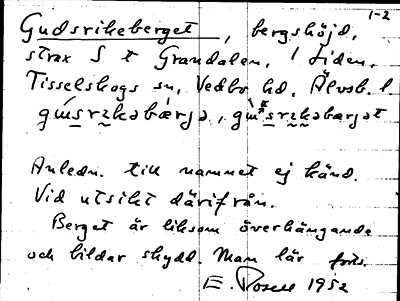 1-2
Gudsrikeberget, bergshöjd,
strax S t Grandalen, i Liden,
Tisselskogs sn, Vedbo hd, Älvsb. l.
Anledn. till namnet ej känd.
Vid utsikt därifrån.
Berget är liksom överhängande
och bildar skydd. Man lär
E. Rosell 1952